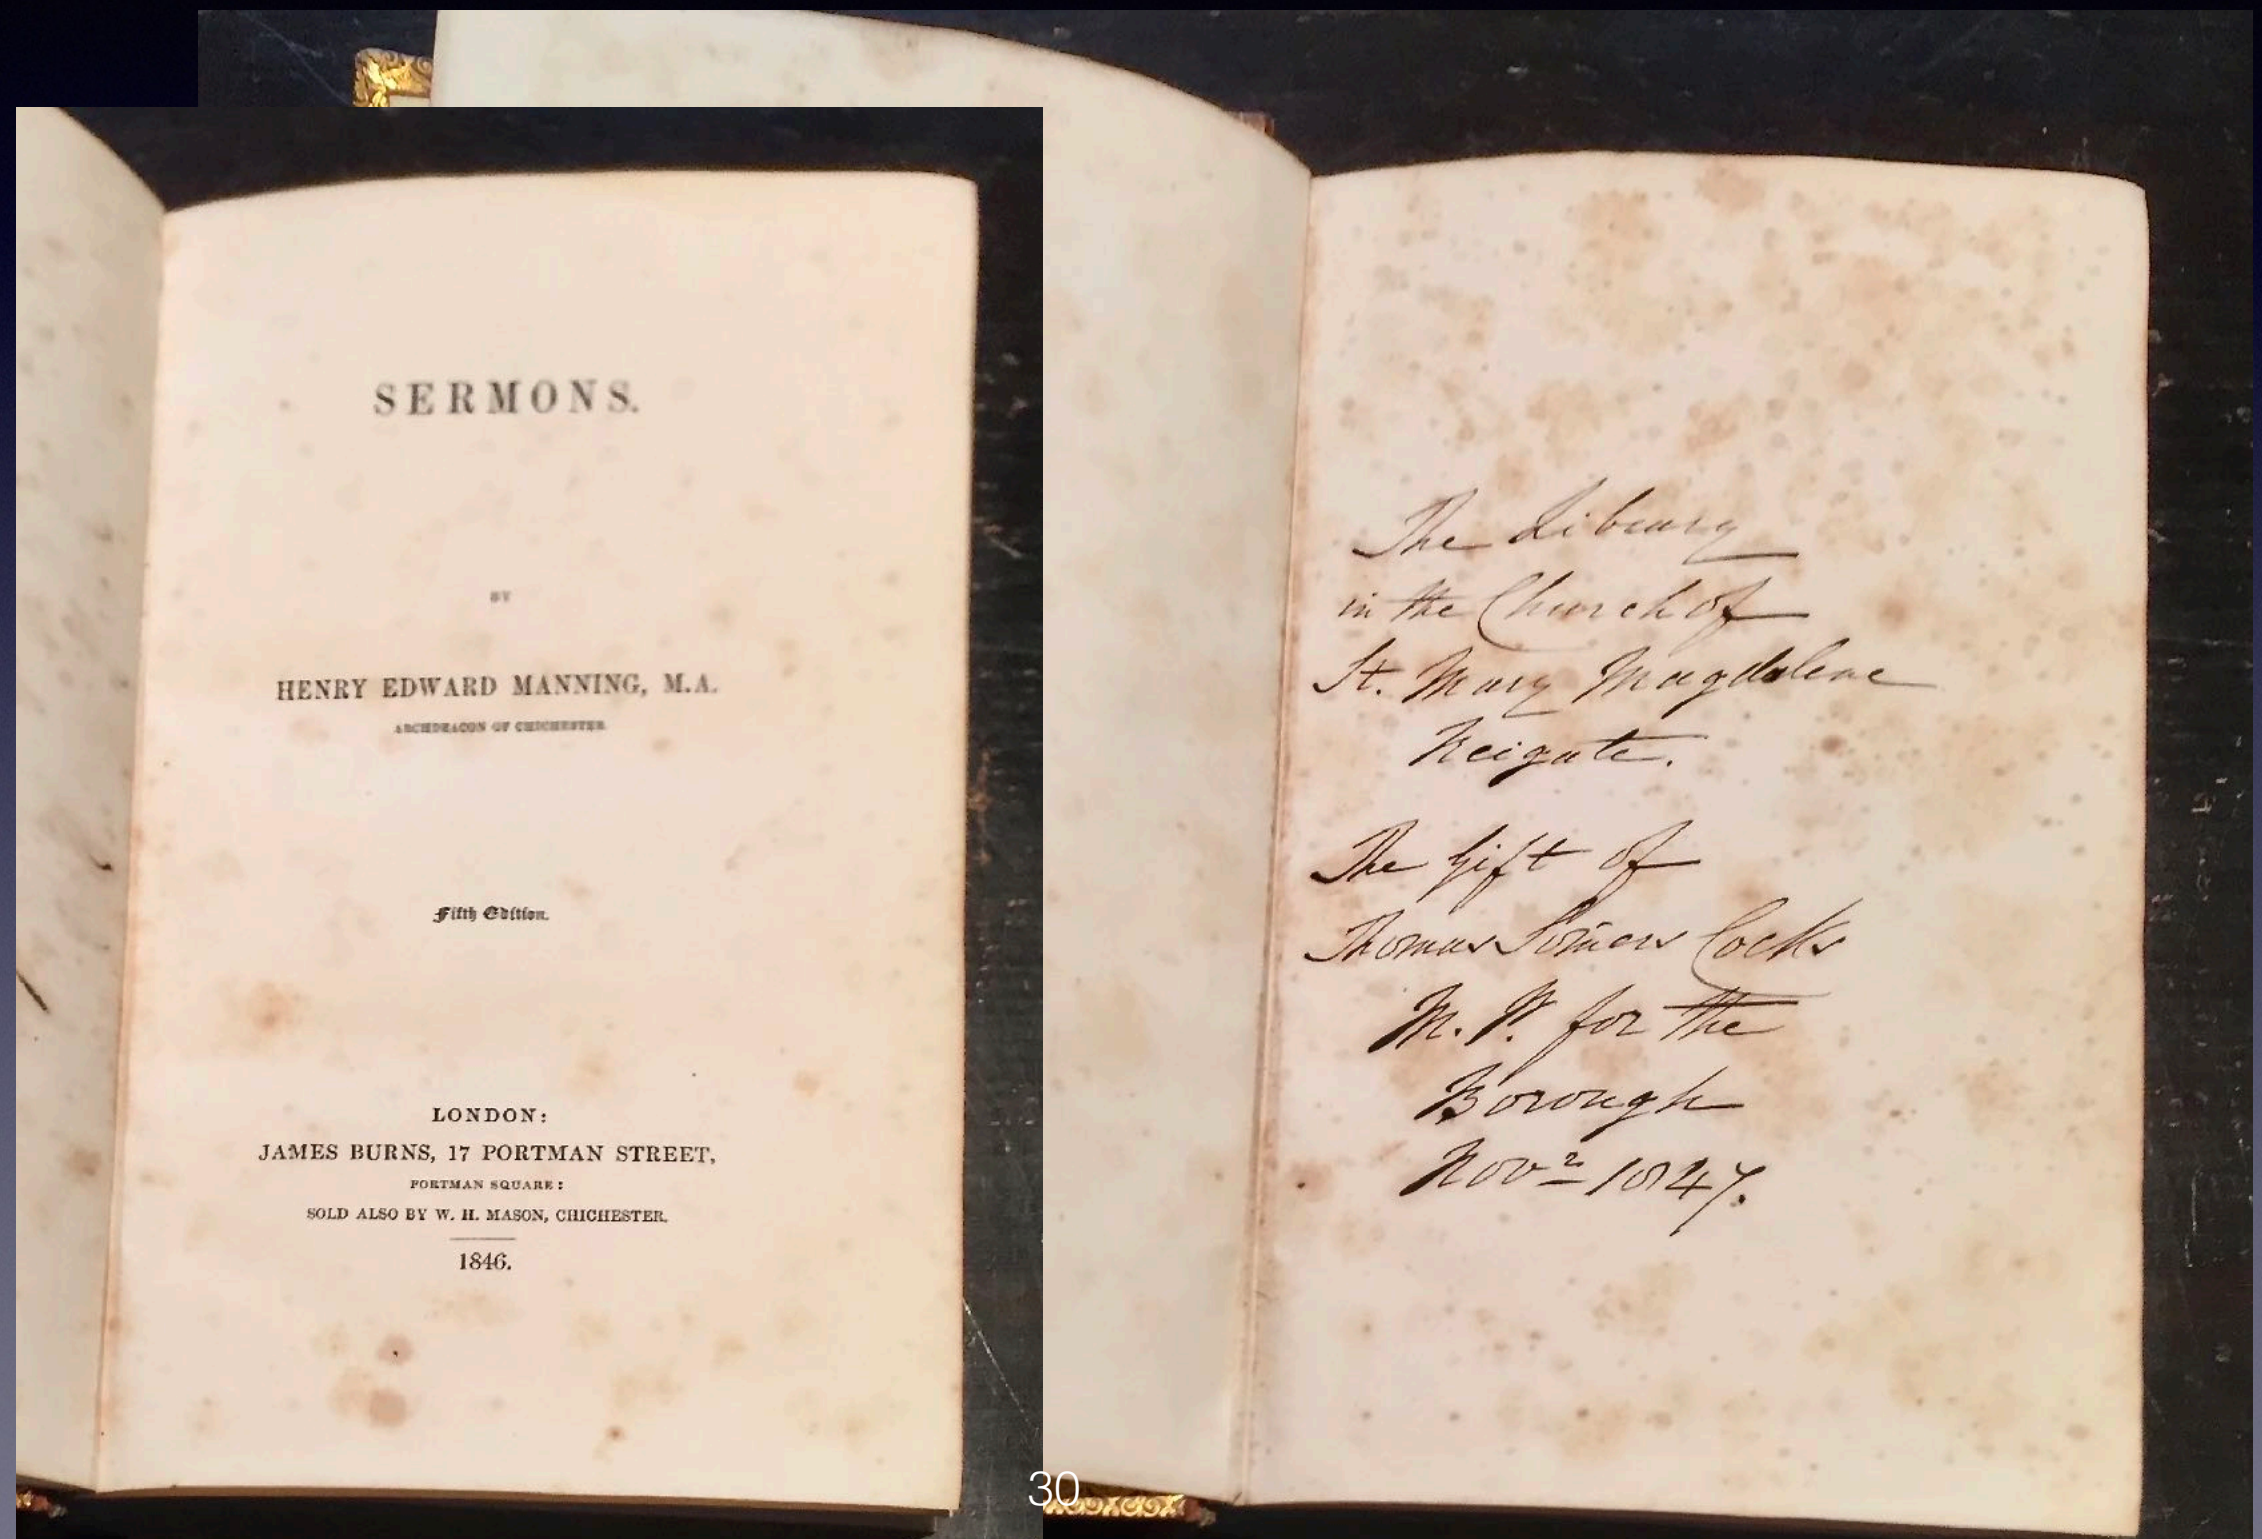 SERMONS.
BY
HENRY EDWARD MANNING, M.A.
ARCHDEACON OF CHICHESTER
Fifth Edition.
LONDON:
JAMES BURNS, 17 PORTMAN STREET,
PORTMAN SQUARE:
SOLD ALSO BY W. H. MASON, CHICHESTER.
1846.
The Library
in the Church of
St. Mary Magdalene
Reigate.
The Gift of
Thomas Somers Cocks
M. P. for the
Borough
Novr 1847.
30